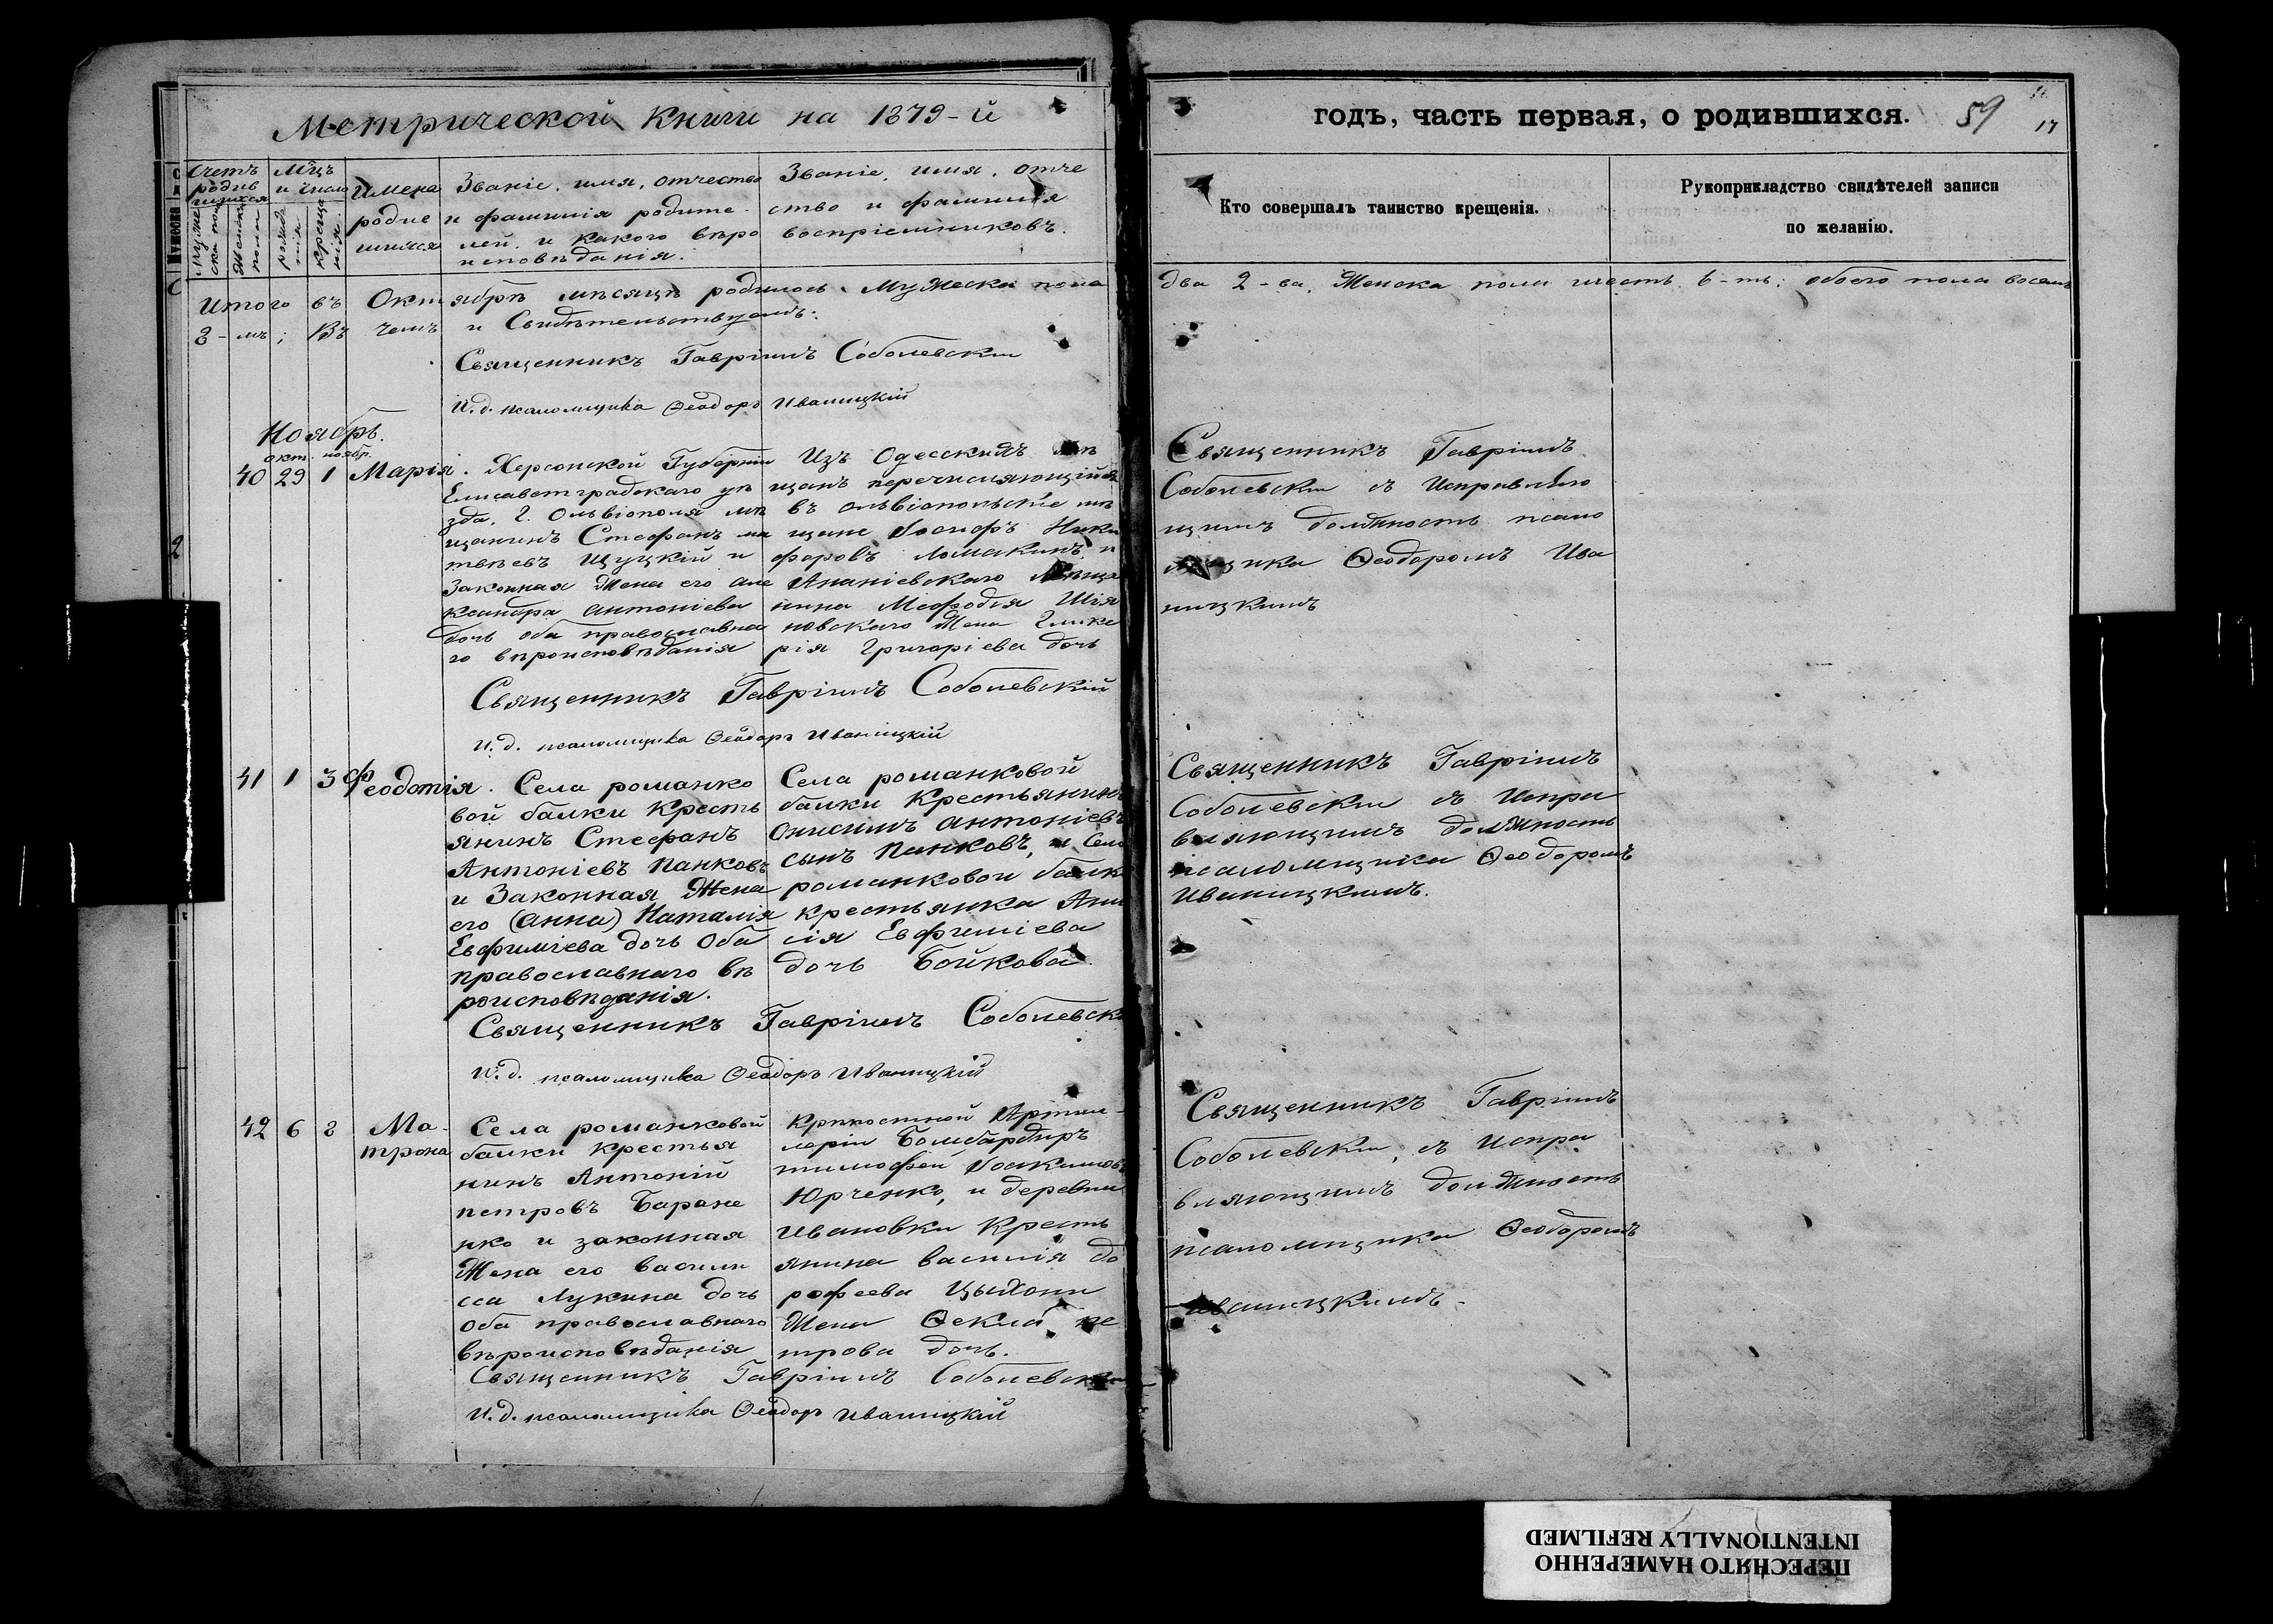 Метрической Книги на 1879-й
годъ, часть первая, о родившихся.
59
17
Счетъ родившихся
Муже
ска пола
Женска
пола
Мцъ и число
рожде
нія
креще
нія.
Имена
родив
шихся
Званіе, имя, отчество
и фамилія родите-
лей и какого вѣро
исповѣданія.
Званіе, имя, отче
ство и фамилія
воспріемниковъ.
Кто совершалъ таинство крещенія.
Рукоприкладство свидѣтелей записи
по желанію.
Итого въ Октябрѣ мѣсяцѣ родилось Мужеска пола два 2-ва, Женска пола шесть 6-ть; обоего пола восемь
8-мъ; Въ чемъ и Свидѣтельствуемъ:
Священникъ Гавріилъ Соболевскій
И.д. псаломщика Ѳеодоръ Иваницкій
Ноябрь.
окт. ноябр.
40 29 1 Марія.
Херсонской Губерніи
Елисаветградскаго уѣ
зда, г. Ольвіополя мѣ
щанинъ Стефанъ Ма
твѣевъ Щуцкій и
Законная Жена его Але
ксандра Антоніева
дочь оба православна
го вѣроисповѣданія
Изъ Одесскихъ мѣ
щанъ перечисляющійся
въ ольвіопольскіе мѣ
щане Іосифъ Ники
форовъ Ломакинъ и
Ананіевскаго Мѣща
нина Мефодія Шія
новскаго Жена Глике
рія Григоріева дочь
Священникъ Гавріилъ
Соболевскій съ Исправляю
щимъ должность псало
мщика Ѳеодоромъ Ива
ницкимъ
Священникъ Гавріилъ Соболевскій
И.д. псаломщика Ѳеодоръ Иваницкій
41 1 3 Феодотія.
Села романко
вой балки Кресть
янинъ Стефанъ
Антоніевъ Панковъ
и Законная Жена
его (Анна) Наталія
Евфиміева дочь Оба
православнаго вѣ
роисповѣданія.
Села романковой
балки Крестьянинъ
Онисимъ Антоніевъ
сынъ Панковъ, и Села
романковой балк
крестьянка Ани
сія Евфиміева
дочь Бойкова.
Священникъ Гавріилъ
Соболевскій съ Испра
вляющимъ должность
псаломщика Ѳеодоромъ
Иваницкимъ.
Священникъ Гавріилъ Соболевск
И.д. псаломщика Ѳеодоръ Иваницкій
42 6 8 Ма-
трона
Села романковой
балки Крестья
нинъ Антоній
петровъ Баране
нко и законная
Жена его Васили
сса Лукина дочь
Оба православнаго
вѣроисповѣданія
Крѣпостной Артил-
леріи Бомбардиръ
тимофей Іоакимовъ
Юрченко, и деревни
Ивановки Кресть
янина Василія до
рофеева Цыхони
Жена Ѳекла пе
трова дочь.
Священникъ Гавріилъ
Соболевскій, съ Испра
вляющимъ должность
псаломщика Ѳеодоромъ
Иваницкимъ.
Священникъ Гавріилъ Соболевскій
И.д. псаломщика Ѳеодоръ Иваницкій
ПЕРЕСНЯТО НАМЕРЕННО
INTENTIONALLY REFILMED